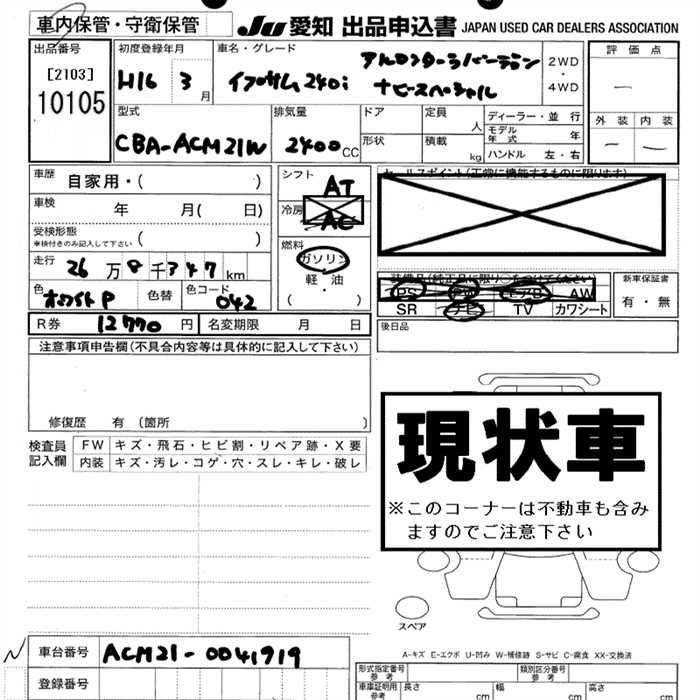 車内保管・守衛保管 JU 愛知 出品申込書 JAPAN USED CAR DEALERS ASSOCIATION
出品番号 初度登録年月 車名・グレード 評価点
[2103] H16 3月 イプサム240i アルカンターラバージョン 2WD
・
10105 ナビスペシャル 4WD
型式 排気量 ドア 定員 人 ディーラー・並行 外装 内装
CBA-ACM21W 2400CC 形状 積載 kg モデル年式 年
ハンドル 左・右
車歴 自家用・( ) シフト AT セールスポイント(正常に機能するものに限ります)
車検 年 月( 日) 冷房 AC
受検形態 ( )
※検付きのみ記入して下さい
燃料 ガソリン
走行 26万8千347km 軽・油
( ・ )
装備品(純正品に限り○をつけてください) 新車保証書
色 ホワイトP 色替 色コード 042 PS AW 有・無
SR ナビ TV カワシート
R券 12770円 名変期限 月 日 後日品
注意事項申告欄(不具合内容等は具体的に記入して下さい)
修復歴 有 (箇所 )
検査員 FW キズ・飛石・ヒビ割・リペア跡・X要
記入欄 内装 キズ・汚レ・コゲ・穴・スレ・キレ・破レ
現状車
※このコーナーは不動車も含み
ますのでご注意下さい
スペア
A-キズ E-エクボ U-凹み W-補修跡 S-サビ C-腐食 XX-交換済
車台番号 ACM21-0041919
登録番号
形式指定番号 参考 類別区分番号 参考
車庫証明用 参考 長さ cm 幅 cm 高さ cm